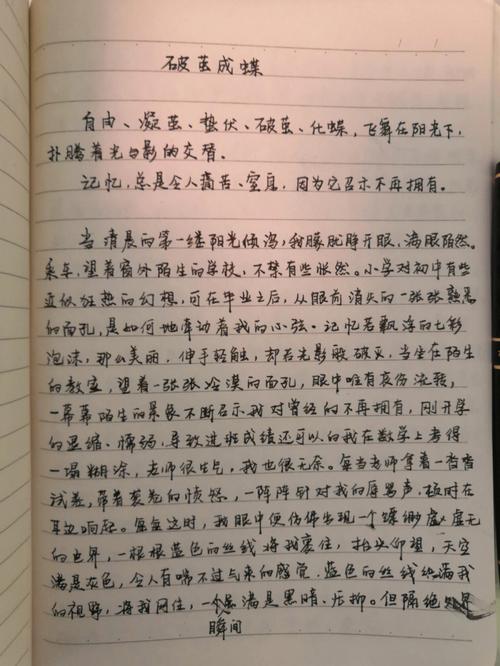 破茧成蝶
自由、凝茧、蛰伏、破茧、化蝶，飞舞在阳光下，
扑腾着光与影的交替。
记忆，总是令人痛苦、窒息，因为它召示不再拥有。
当清晨的第一缕阳光倾泻，我朦胧睁开眼，满眼陌然。
乘车，望着窗外陌生的学校，不禁有些怅然。小学对初中有些
近似狂热的幻想，可在毕业之后，从眼前消失的一张张熟悉
的面孔，是如何地牵动着我的心弦。记忆若飘浮的七彩
泡沫，那么美丽，伸手轻触，却若光影般破灭，当坐在陌生
的教室，望着一张张冷漠的面孔，眼中唯有哀伤流转，
一幕幕陌生的景象不断召示我对曾经的不再拥有，刚开学
的畏缩、懦弱，导致进班成绩还可以的我在数学上考得
一塌糊涂，老师很生气，我也很无奈。每当老师拿着一沓沓
试卷，带着的愤怒，一阵阵针对我的辱骂声，极时在
耳边响起。每每这时，我眼中便仿佛出现一个缥缈虚无
的世界，一根根蓝色的丝线将我裹住，抬头仰望，天空
满是灰色，令人有喘不过气来的感觉，蓝色的丝线缠满我
的视野，将我网住，满是黑暗、压抑。但隔绝外界
瞬间